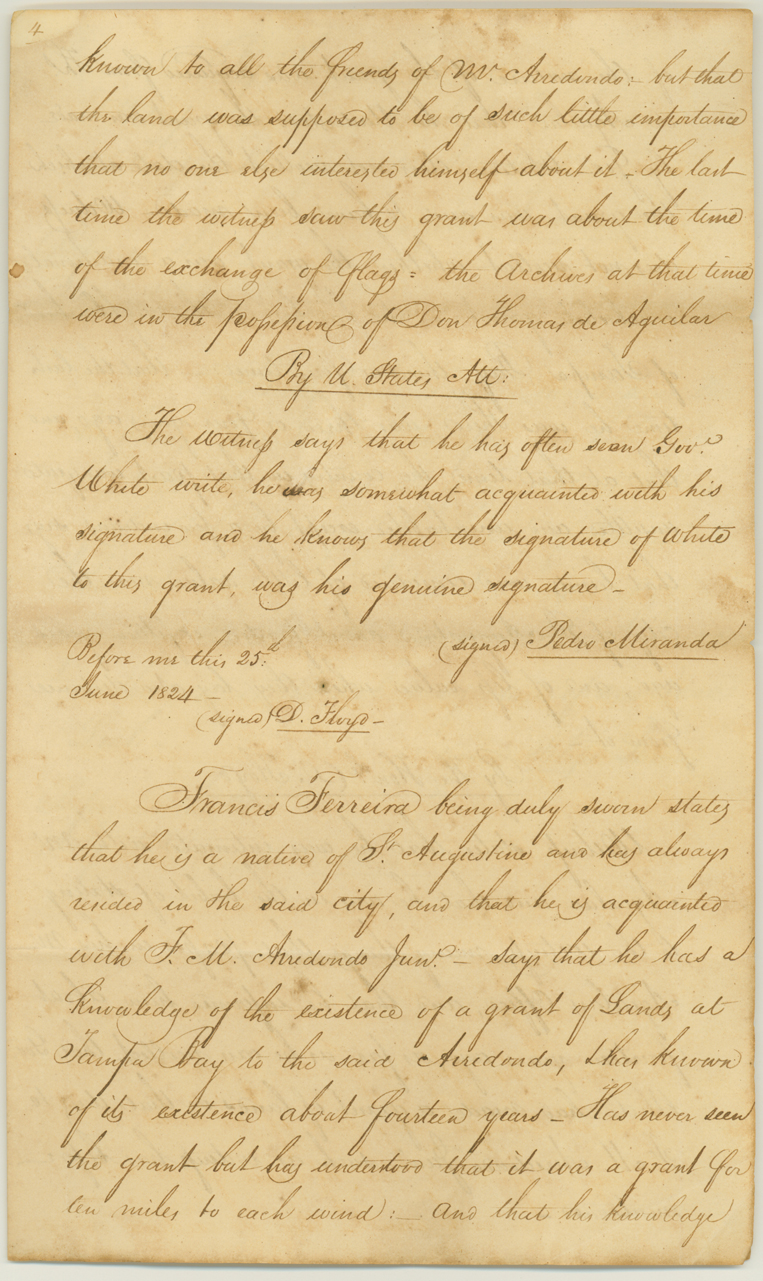 4
known to all the friends of Mr. Arredondo:- but that
the land was supposed to be of such little importance
that no one else interested himself about it - The last
time the witness saw this grant was about the time
of the exchange of flags = the Archives at that time
were in the possession of Don Thomas de Aguilar
By U. States Att:
The witness says that he has often seen Govr.
White write, he was somewhat acquainted with his
signature and he knows that the signature of White
to this grant, was his genuine signature -
(signed) Pedro Miranda
Before me this 25th.
June 1824 -
(signed) D. Floyd -
Francis Ferreira being duly sworn states
that he is a native of St. Augustine and has always
resided in the said city, and that he is acquainted
with F. M. Arredondo Junr. - says that he has a
knowledge of the existence of a grant of Lands at
Tampa Bay to the said Arredondo, & has known
of its existence about fourteen years - Has never seen
the grant but has understood that it was a grant for
ten miles to each wind: - and that his knowledge